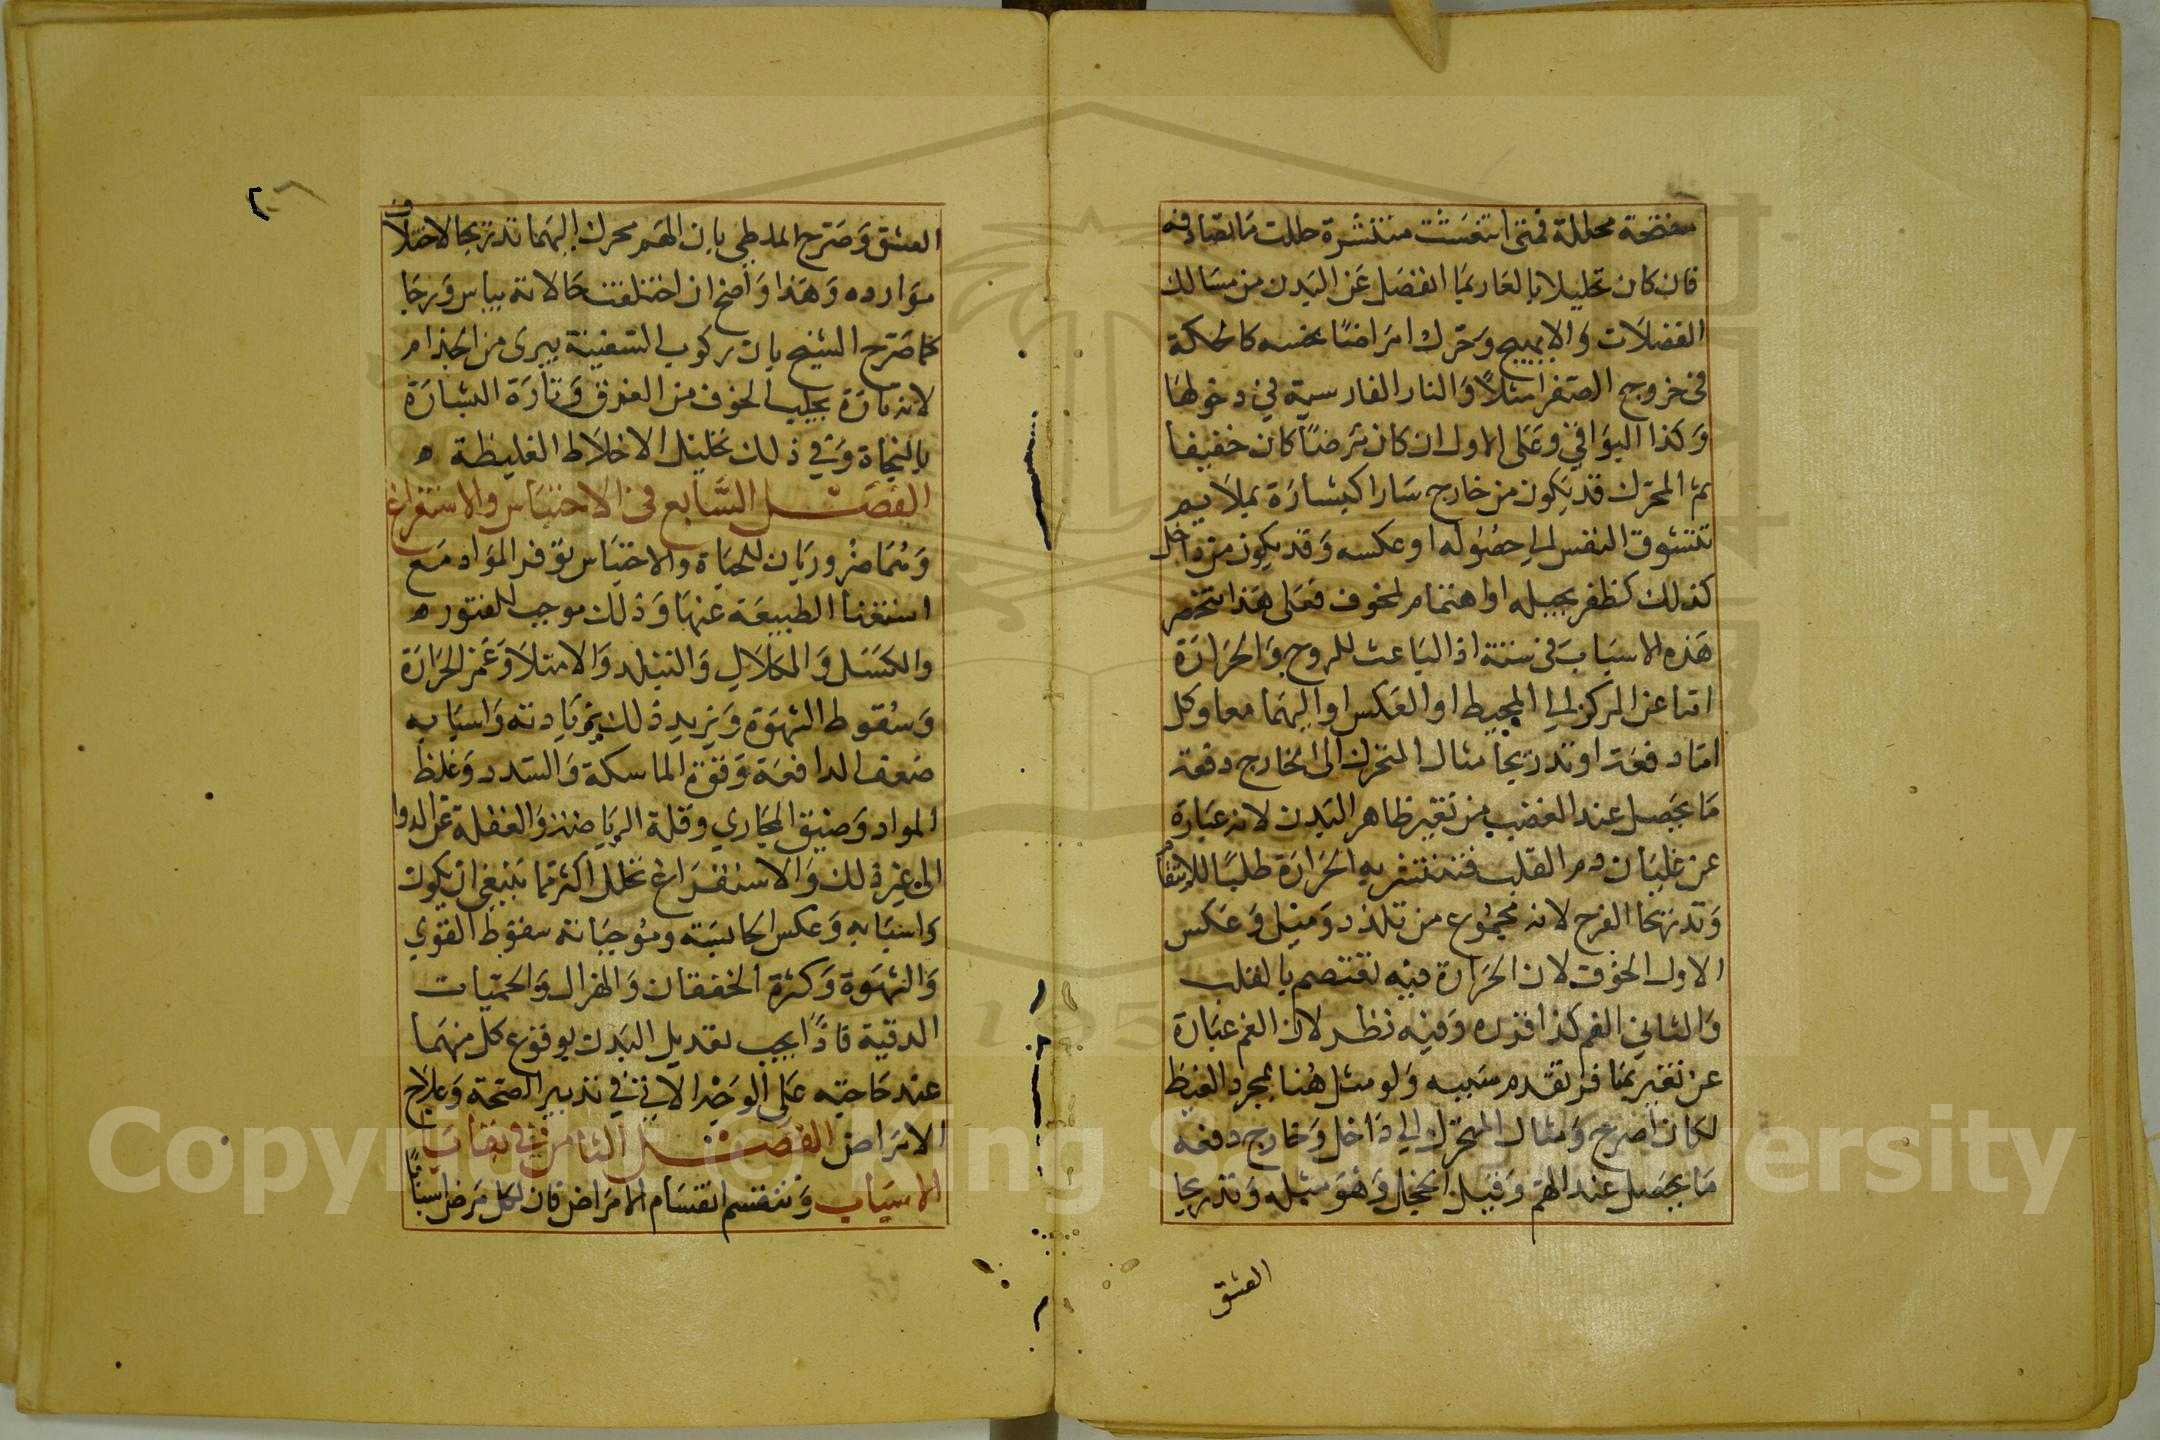 منضجة محللة فمتى انتعشت منتشرة حللت ما تصادفه
فان كان تحليلا بالغا ربما انفصل عن البدن من مسالك
الفضلات والا بهيج وحرك امراضا بحسبه كالحكة
في خروج الصفرا مثلا والنار الفارسية في دخولها
وكذا البواقي وعلى الاول ان كان مرضا كان خفيفا
ثم المحرك قد يكون من خارج سارا كبشارة بملايم
تتشوق النفس الى حصوله او عكسه وقد يكون من داخل
كذلك كظفر بجيله او اهتمام لمخوف فعلى هذا تنحصر
هذه الاسباب في ستة اذ الباعث للروح والحرارة
اما عن المركز الى المحيط او العكس او اليهما معا وكل
اما دفعة او تدريجا مثال المتحرك الى الخارج دفعة
ما يحصل عند الغضب من تغير ظاهر البدن لانه عبارة
عن غليان دم القلب فتنتشر به الحرارة طلبا للانتقام
وتدريجا الفرح لانه مجموع من تلذذ وميل وعكس
الاول الخوف لان الحرارة فيه تعتصم بالقلب
والثاني الغم كذا قرره وفيه نظر لان الغم عبارة
عن تغير بما قد تقدم سببه ولو مثل هنا بمجرد الغيظ
لكان اصرح ومثال المتحرك الى داخل وخارج دفعة
ما يحصل عند الهم وقيل الخجل وهو مثله وتدريجا
العشق
العشق وصرح الملطي بان الهم محرك اليهما تدريجا لاختلاف
موارده وهذا واضح ان اختلفت حالاته بياس ورجا
كما صرح الشيخ بان ركوب السفينة يبرى من الجذام
لانه تارة يجلب الخوف من الغرق وتارة البشارة
بالنجاة وفي ذلك تحليل الاخلاط الغليظة ه
الفصل السابع في الاحتباس والاستفراغ
وهما ضروريان للحياة والاحتباس توفر المواد مع
استغنا الطبيعة عنها وذلك موجب للفتور ه
والكسل والكلال والتبلد والامتلا وغمر الحرارة
وسقوط الشهوة ويزيد ذلك بزيادته واسبابه
ضعف الدافعة وقوة الماسكة والسدد وغلظ
المواد وضيق المجاري وقلة الرياضة والغفلة عن الدوا
الى غير ذلك والاستفراغ تحلل اكثر مما ينبغي ان يكون
واسبابه وعكس الحابسة وموجباته سقوط القوي
والشهوة وكثرة الخفقان والهزال والحميات
الدقية فاذا يجب تعديل البدن بوقوع كل منهما
عند حاجته على الوجه الاتي في تدبير الصحة وعلاج
الامراض الفصل الثامن في بقايا
الاسباب وتنقسم انقسام الامراض فان لكل مرض اسبابا
Copyright © King Saud University